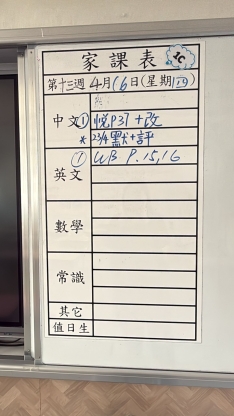 家課表
℃
第十三週 4月16日(星期四)
中文 ① 悅P37+改
* 23/4默+評
① WB P.15,16
英文
數學
常識
其它
值日生